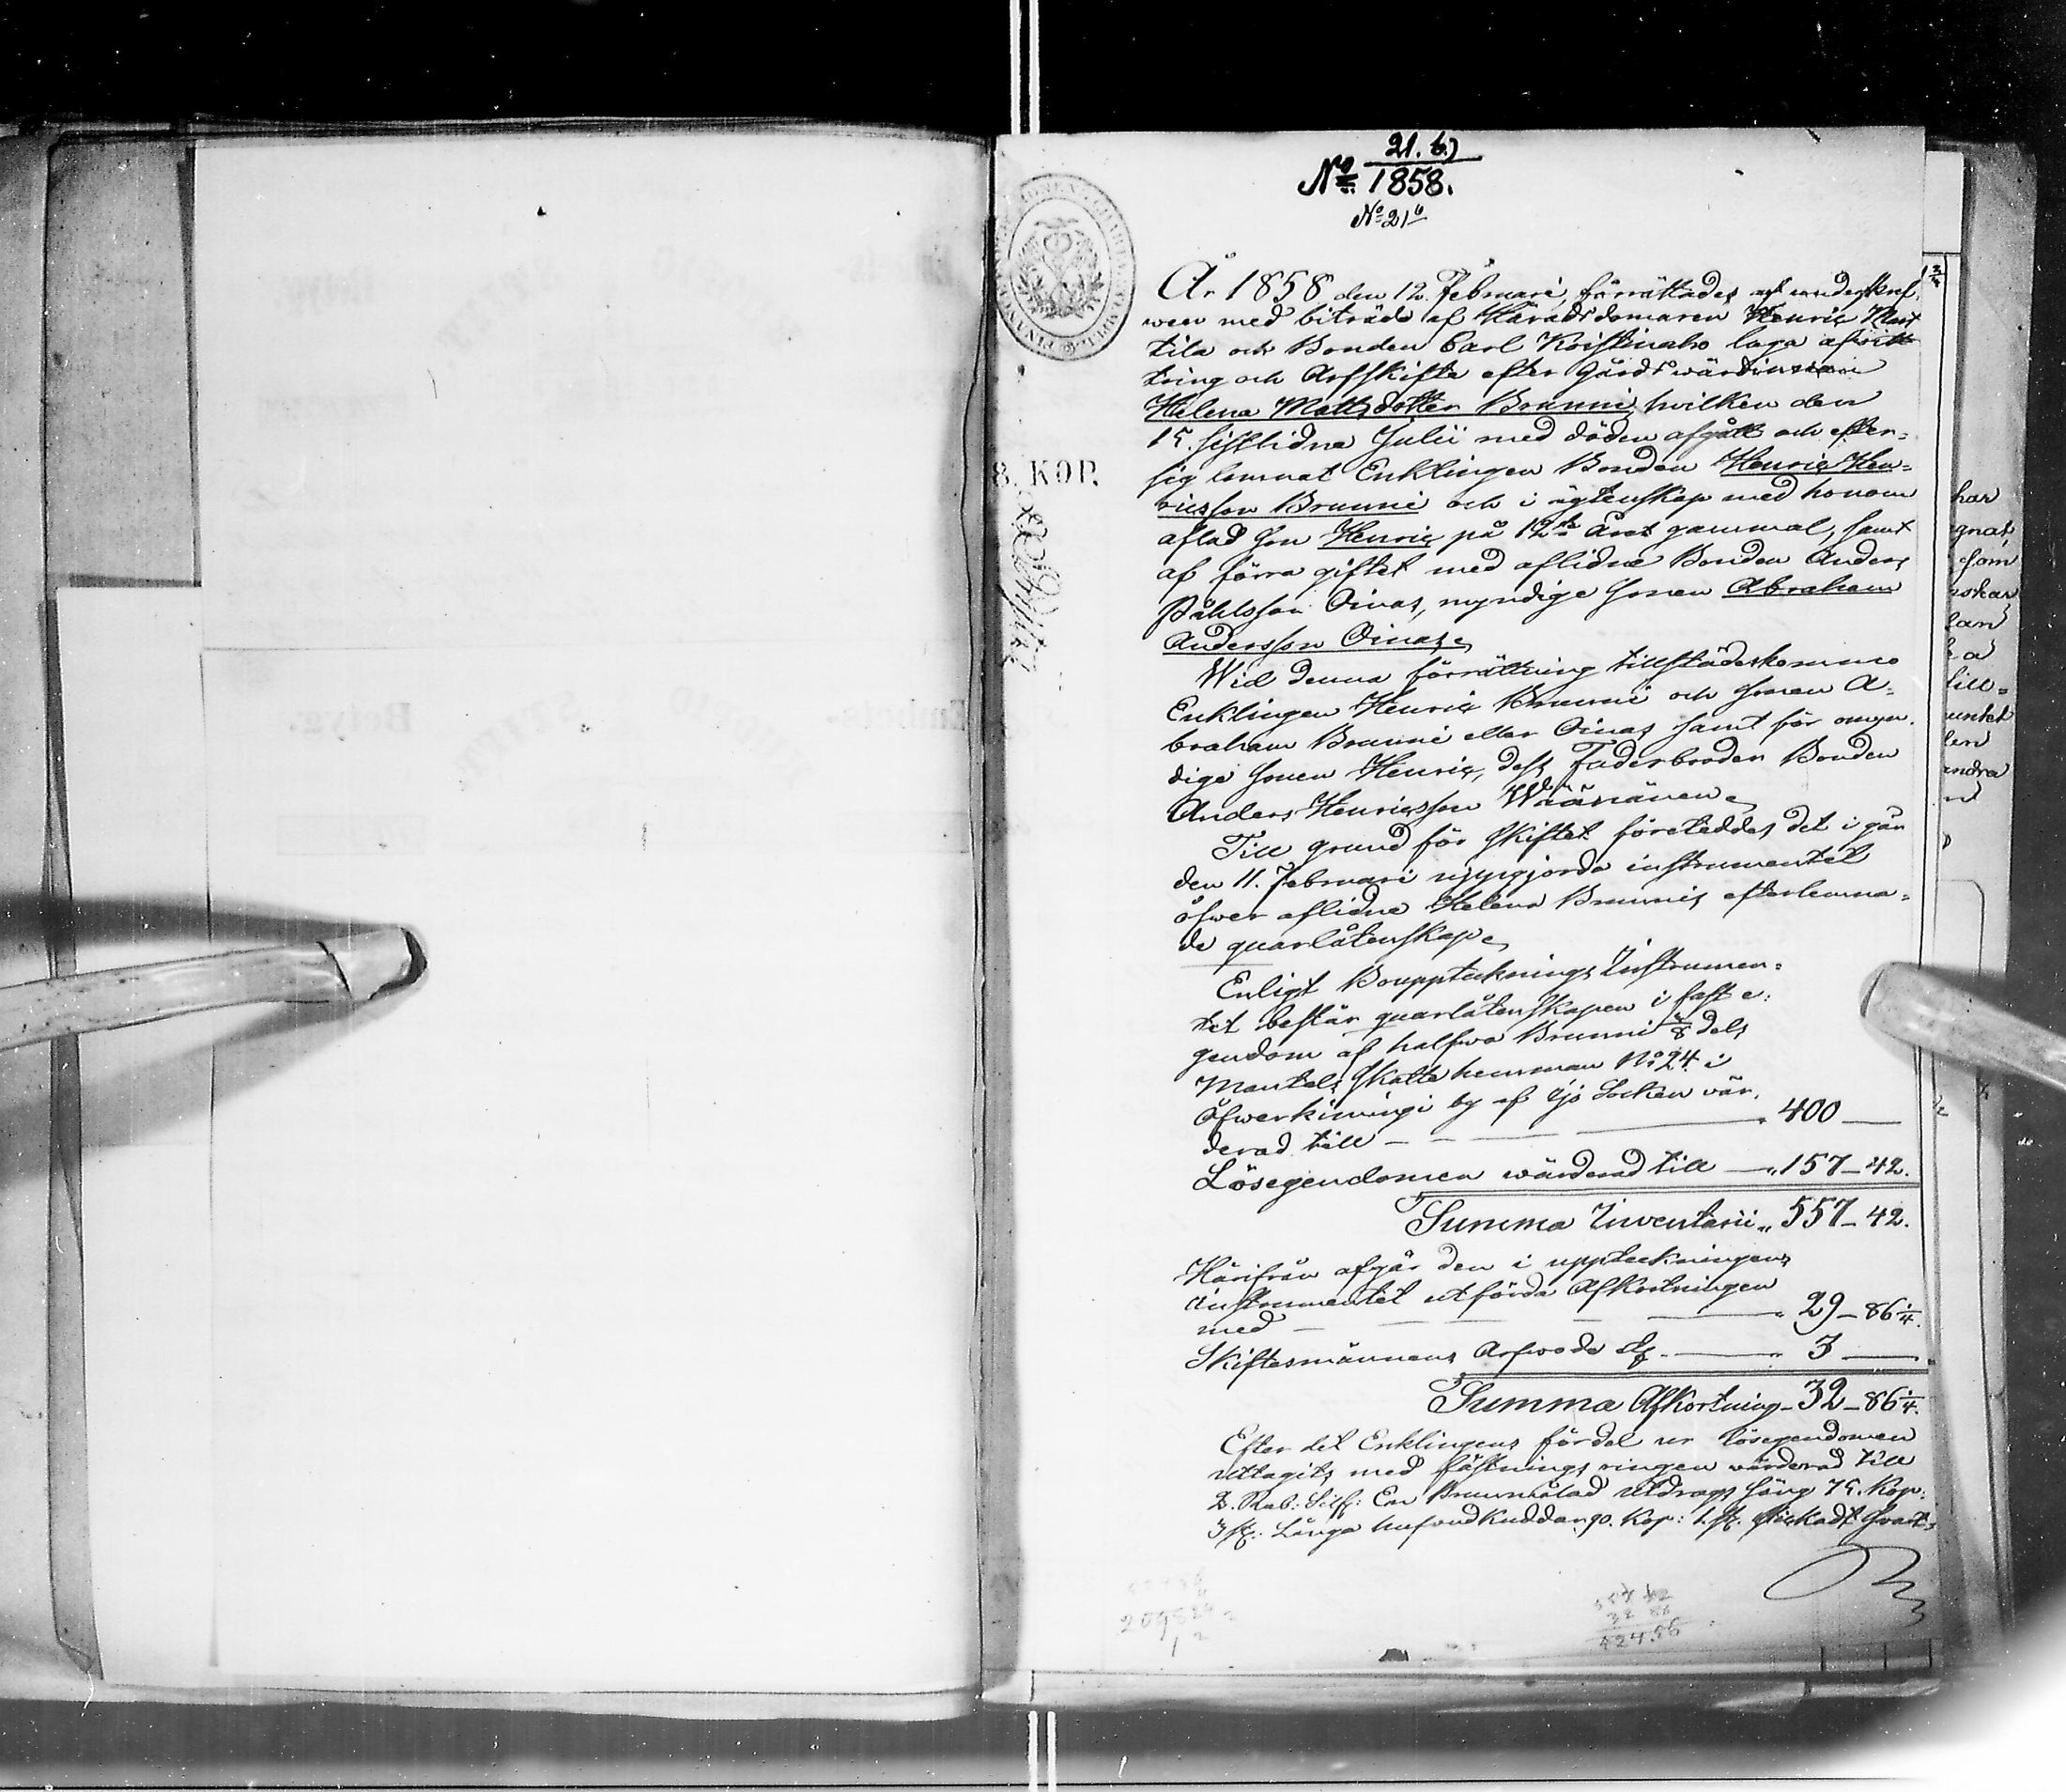 21. b.)
No 1858.
No 21 b
År 1858 den 12. Februari, förrättades af underskref,
wen med biträde af Häradsdomaren Henric Mart
tila och Bonden Carl Kristinaho laga afwitt
tring och Arfskifte efter Gårdswärdinnan
Helena Mattsdotter Brunni, hwilken den
15. sistlidne Julii med döden afgått och efter-
sig lemnat Enklingen Bonden Henric Hen-
ricsson Brunni och i ägtenskap med honom
aflad son Henric på 12te året gammal, samt
af förra giftet med aflidne Bonden Anders
Påhlsson Oinas, myndige sonen Abraham
Andersson Oinas.
Wid denna förrättning tillstädeskommo
Enklingen Henric Brunni och sonen A-
braham Brunni eller Oinas samt för omyn-
dige sonen Henric, dess Faderbroder Bonden
Anders Henricsson Wäänänen.
Till grund för skiftet företeddes det i går
den 11. Februari uppgjorda instrumentet
öfwer aflidne Helena Brunnis efterlemna-
de quarlåtenskap.
Enligt Bouppteknings Instrumen-
tet består quarlåtenskapen i fast e-
gendom af halfwa Brunni dels
Mantals Skatte hemman No 24 i
Öfwerkiimingi by af Ijo Socken vär-
derad till — — — 400 —
Lösegendomen wärderad till — „ 157 — 42.
Summa Inventarii „ 557 — 42.
Härifrån afgår den i uppteckningens
instrumentet utförda Afkortningen
med — — — „ 29 — 86 1/4.
Skiftesmännens Arfwode — „ 3 —
Summa Afkortning — 32 — 86 1/4.
Efter det Enklingens fördel ur lösegendomen
uttagits med fästnings ringen wärderad till
2. Rub: Silf: En Brunmålad utdrags säng 75. Kop:
3 st: Långa hufwudkuddar 90. Kop: 1. st. Svart-
8. KOP.
557 42
32 86
524.56
Betyg.
har
gnat
som
ndra